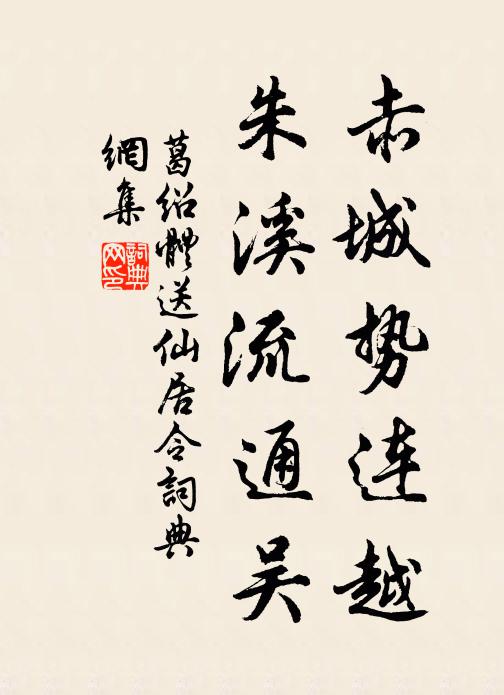 赤城势连越
朱溪流通吴
葛绍體送仙居令詞典
網集
詞典网印